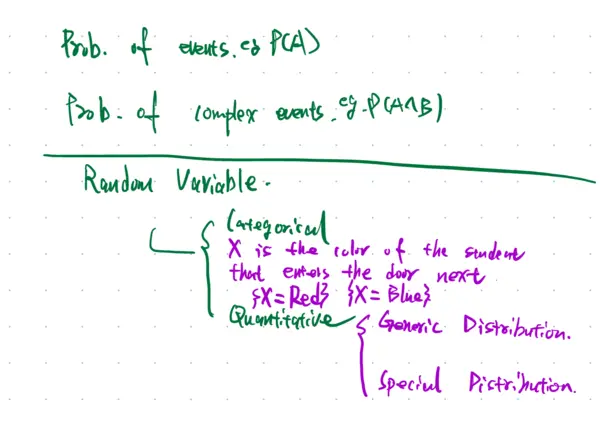 Prob. of events. eg P(A)
Prob. of complex events. eg. P(A∩B)
Random Variable.
Categorical
X is the color of the student
that enters the door next
{X=Red} {X=Blue}
Quantitative
Generic Distribution.
Special Distribution.